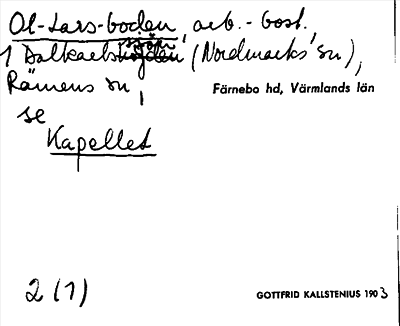 Ol-Lars-boden, arb.-bost.
1 Dalkarlssjön (Nordmarks sn),
Rämens sn,
Färnebo hd, Värmlands län
se
Kapellet
2 (1)
GOTTFRID KALLSTENIUS 1903